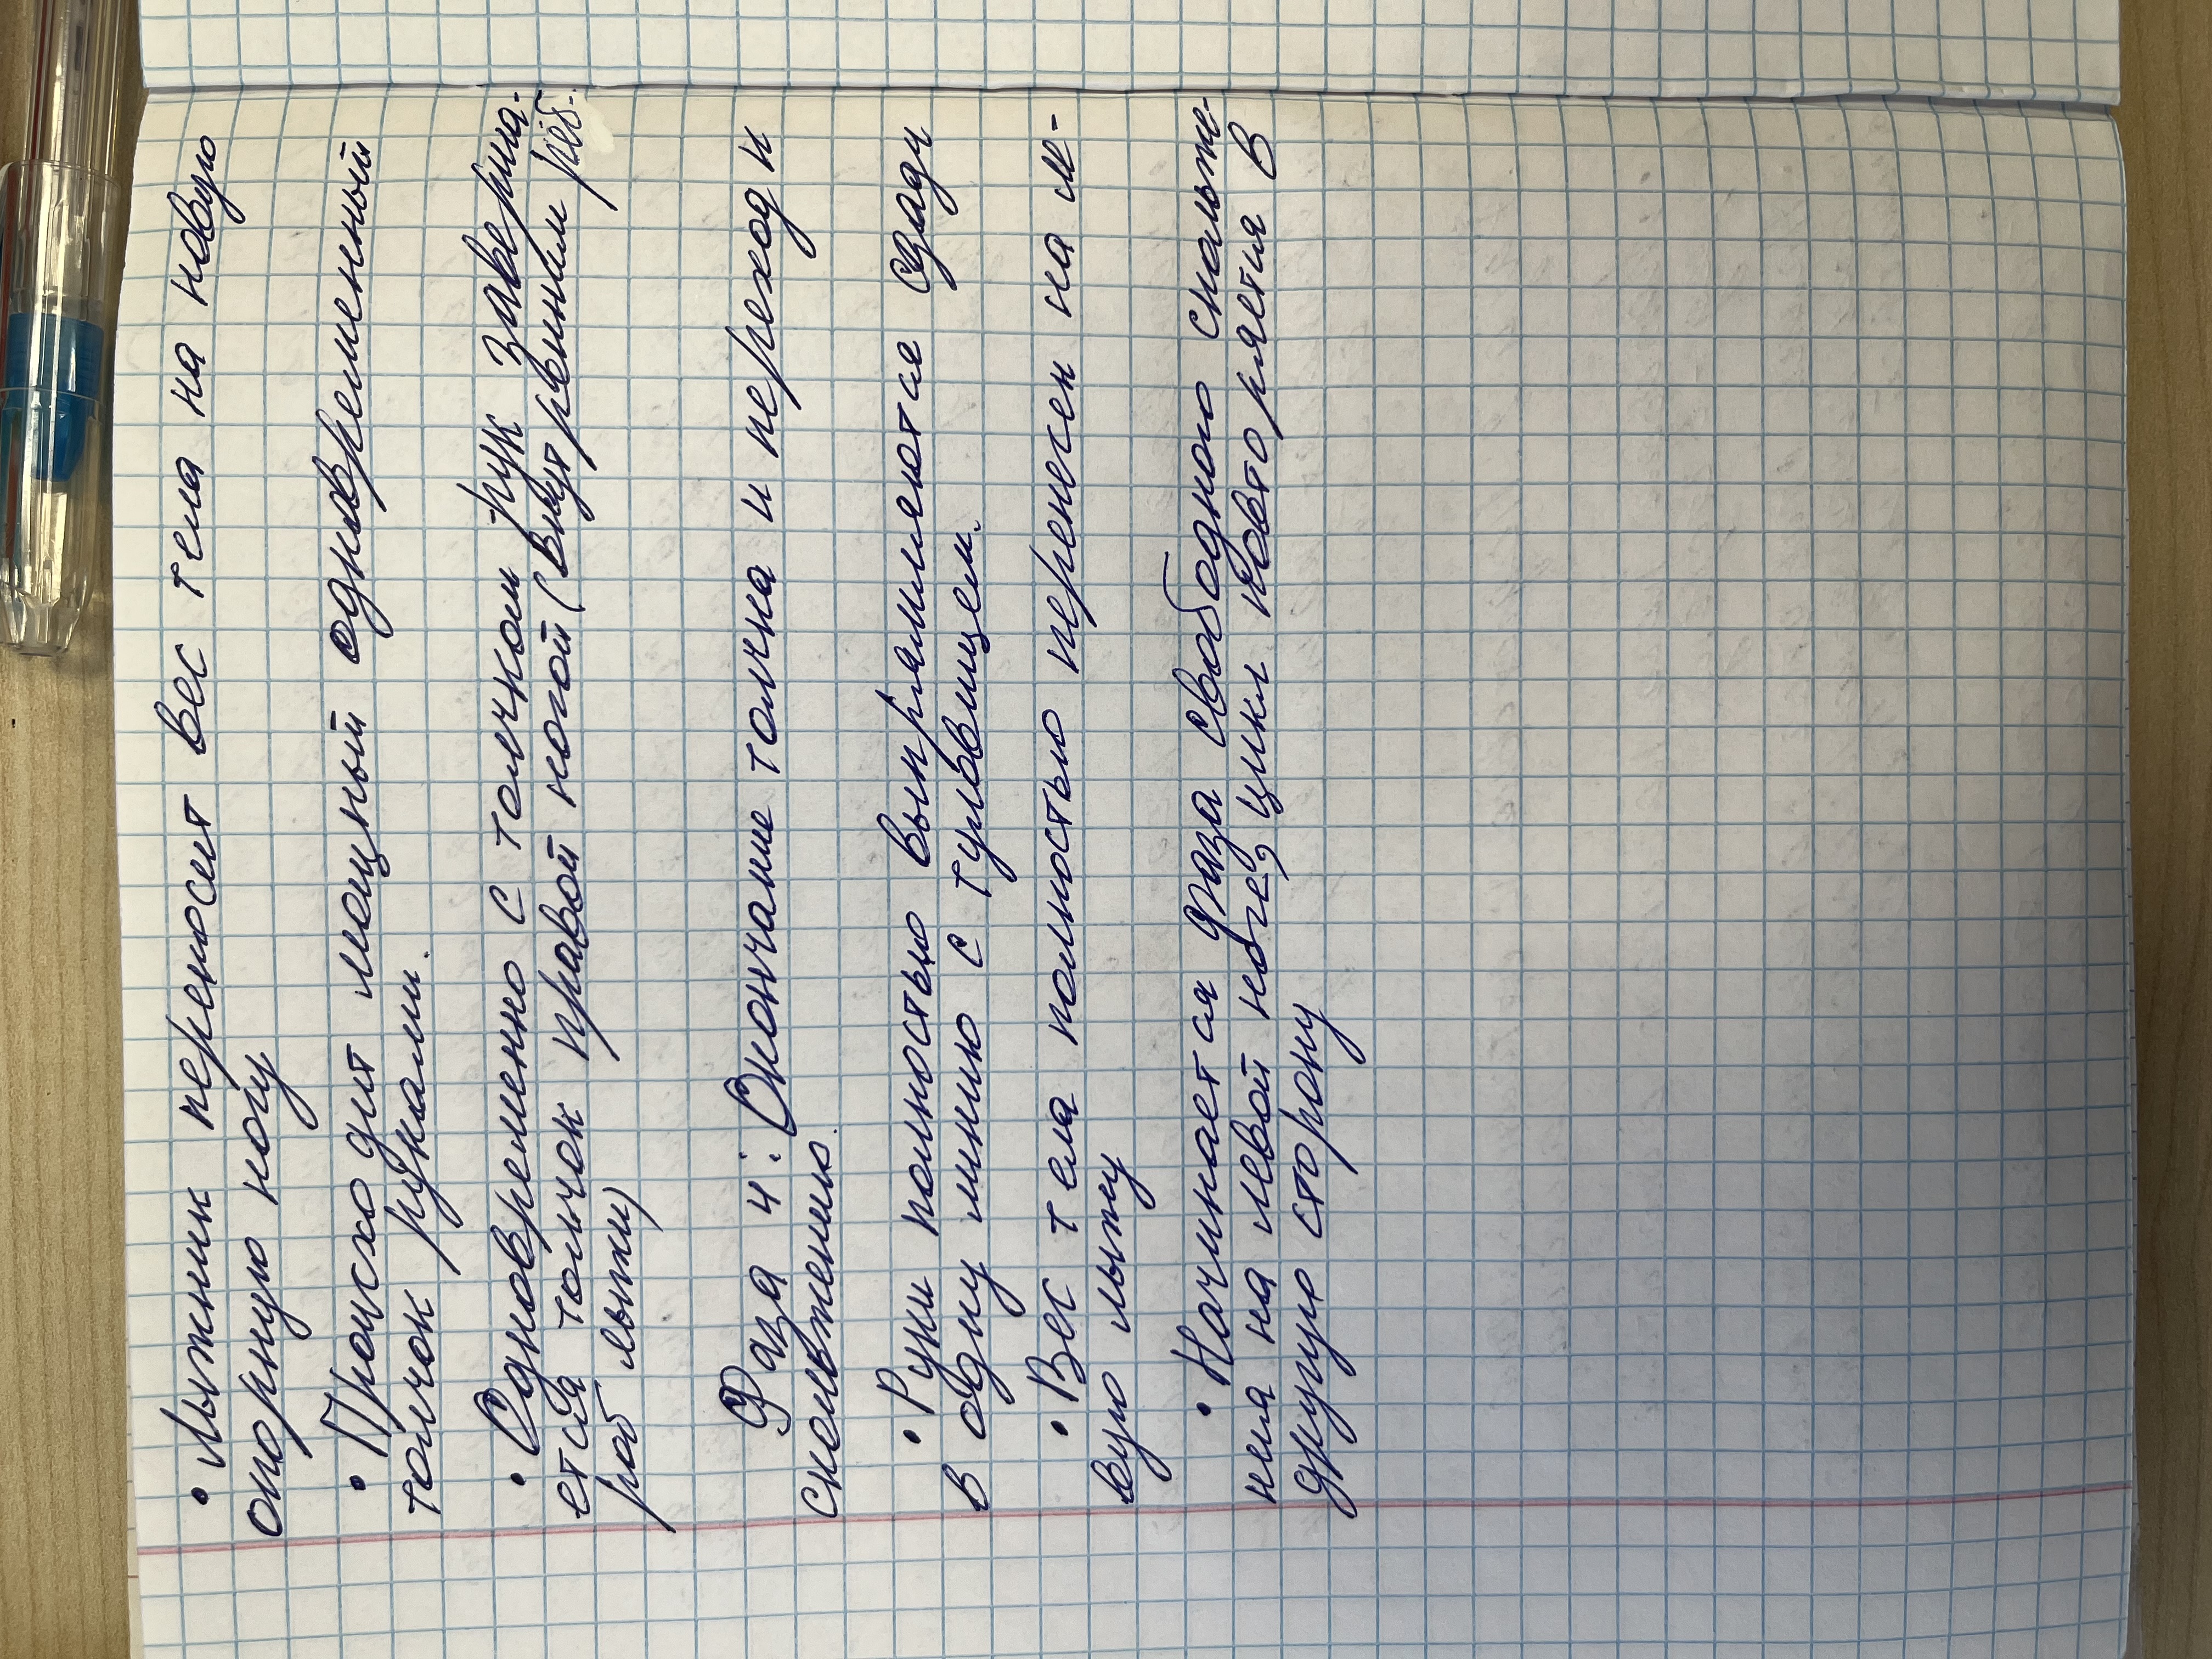 • Лыжник переносит вес тела на новую
опорную ногу
• Происходит мощный одновременный
толчок руками.
• Одновременно с толчком рук заверша-
ется толчок правой ногой (внутренним реб-
ром лыжи)
Фаза 4: Окончание толчка и переход к
скольжению.
• Руки полностью выпрямляются сзади
в одну линию с туловищем.
• Вес тела полностью перенесен на ле-
вую лыжу
• Начинается фаза свободного скольже-
ния на левой ноге, цикл повторяется в
другую сторону